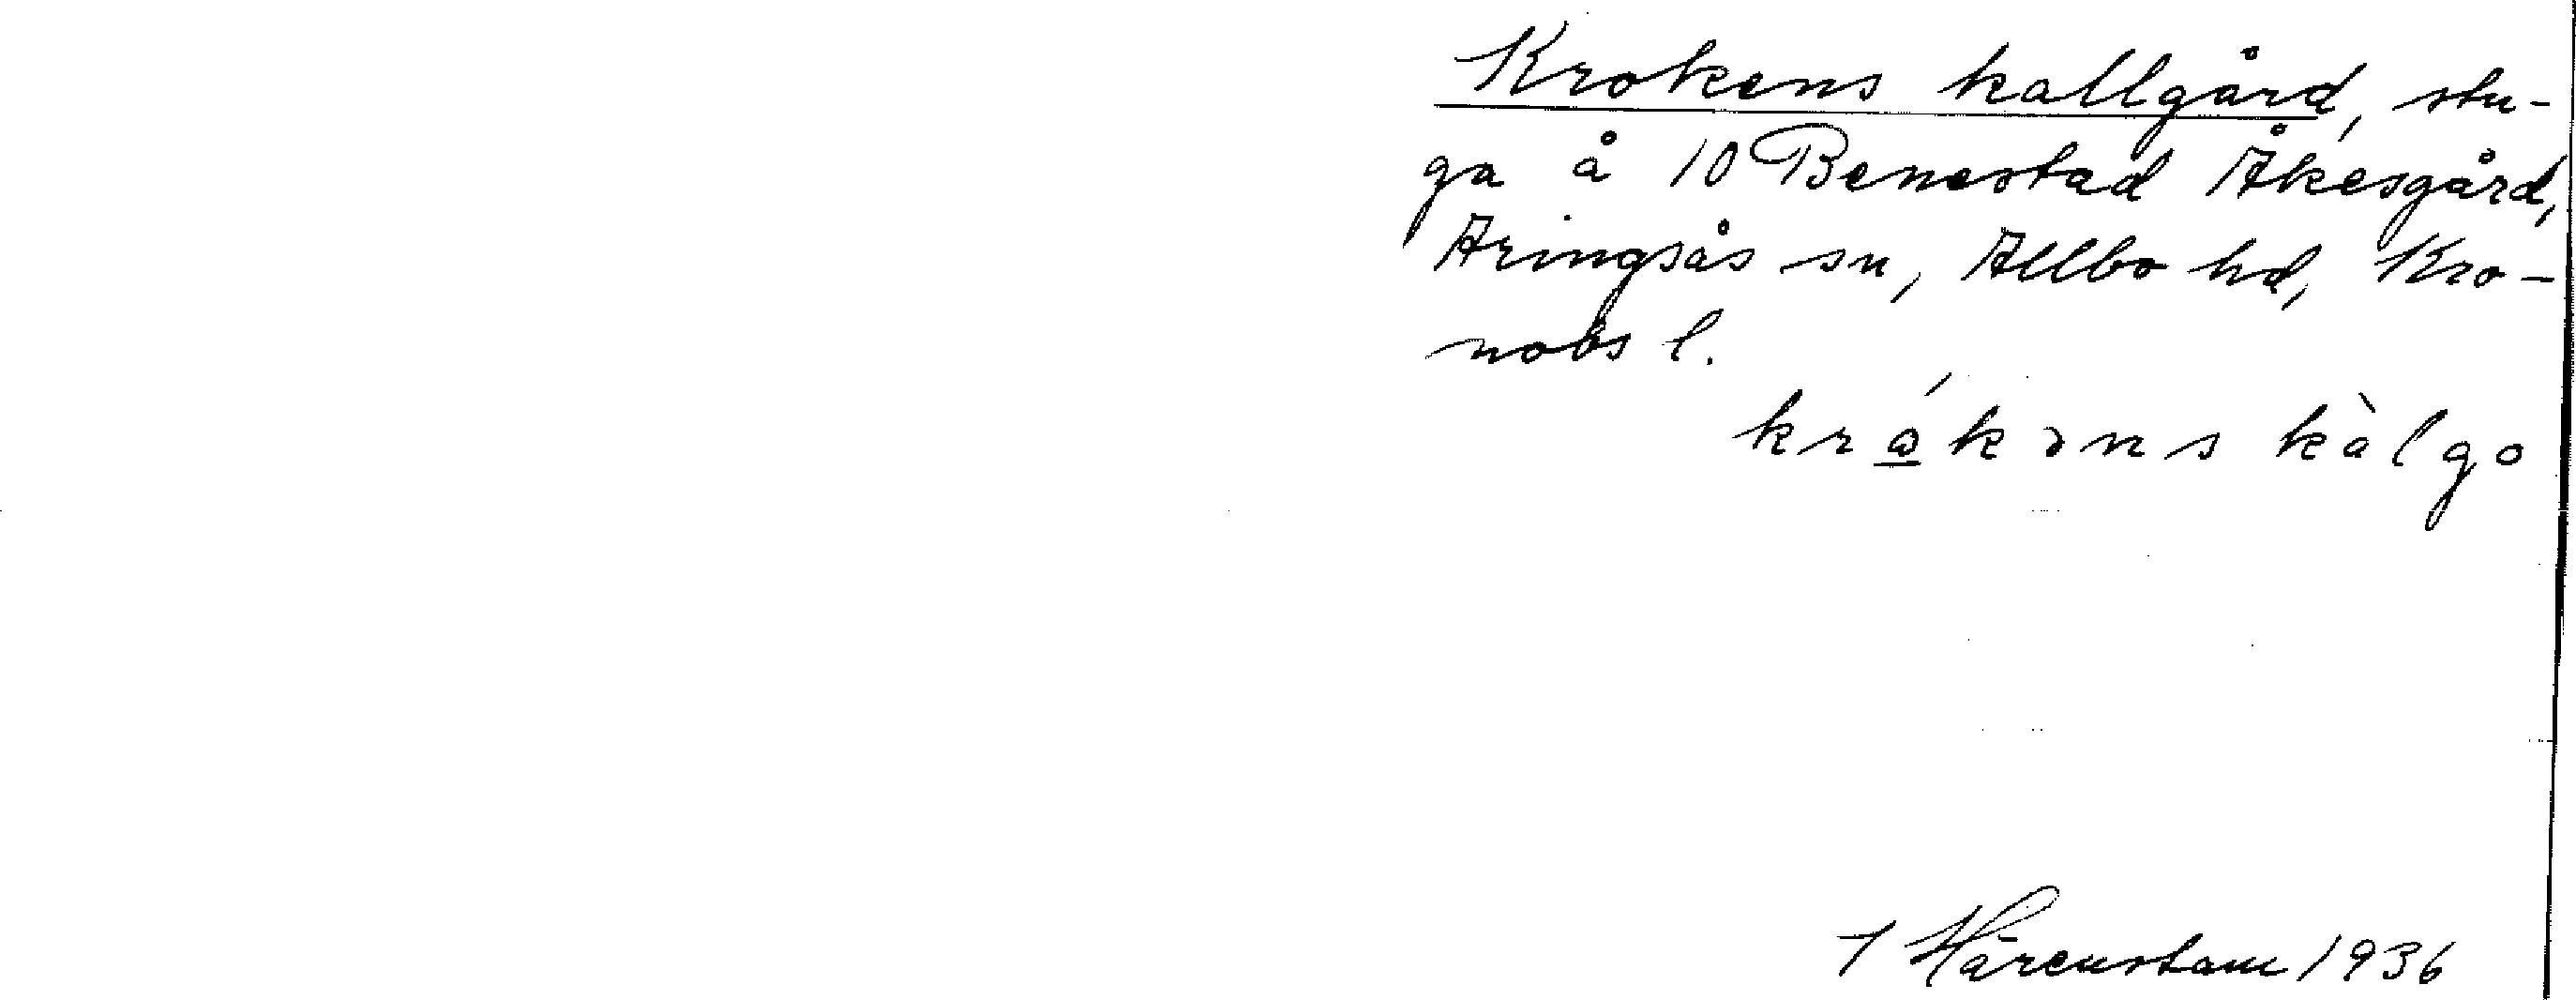 Krokens kallgård, stu-
ga å 10 Benestad Åkesgård,
Aringsås sn, Allbo hd, Kro-
nobs l.
krǻkəns kàlgo
Härenstam 1936